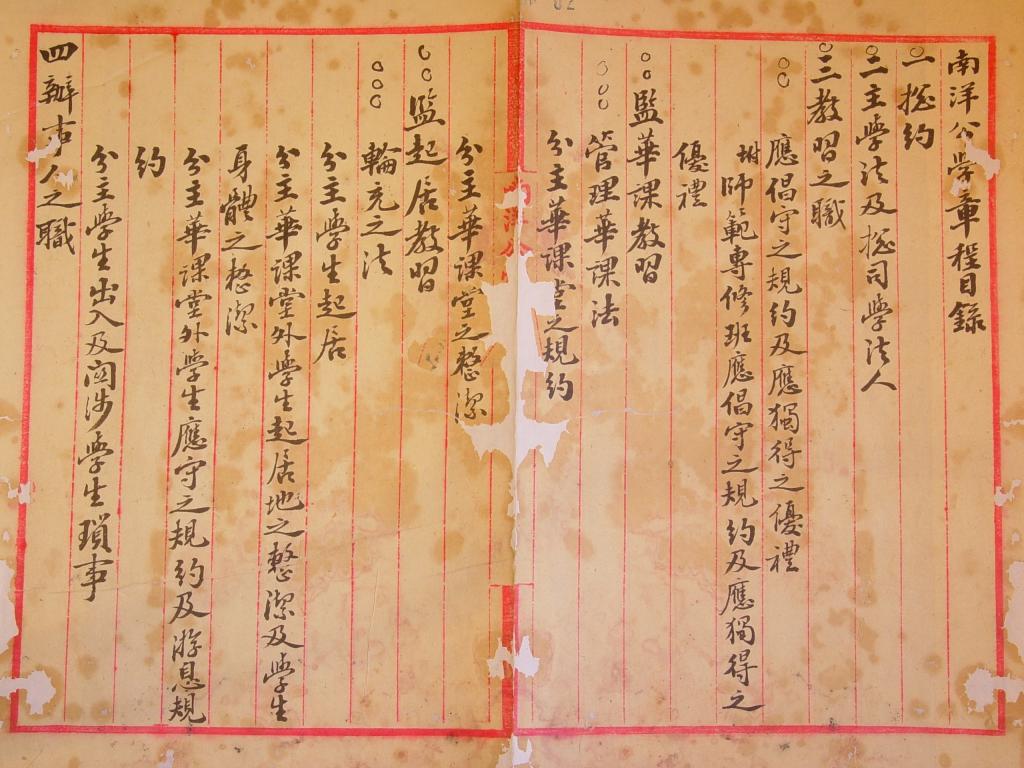 南洋公學章程目錄
一揔約
二主學法及揔司學法人
三教習之職
應倡守之規約及應獨得之優禮
坿師範專修班應倡守之規約及應獨得之
優禮
監華課教習
管理華課法
分主華課堂之規約
分主華課堂之整潔
監起居教習
輪充之法
分主學生起居
分主華課堂外學生起居地之整潔及學生
身體之整潔
分主華課堂外學生應守之規約及游息規
約
分主學生出入及關涉學生瑣事
四辦事人之職